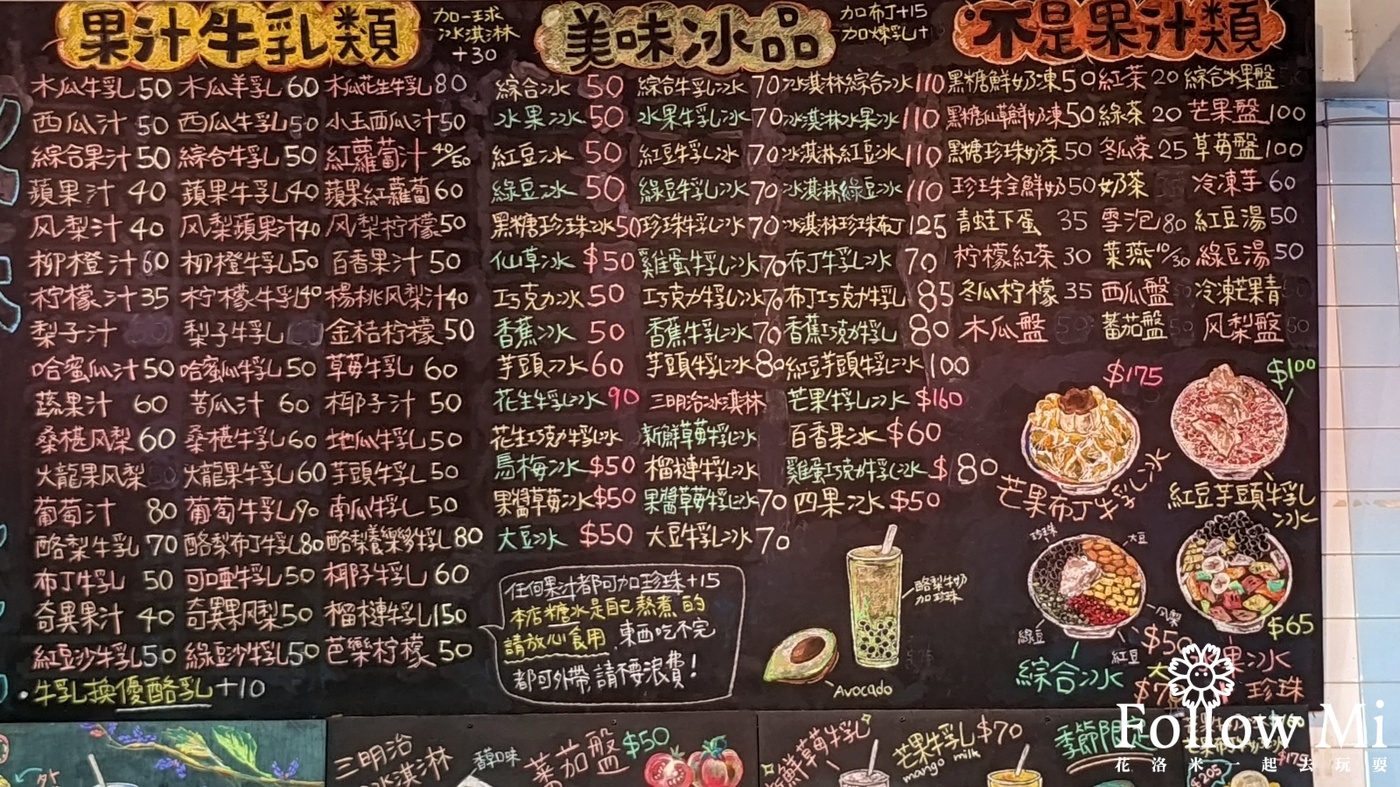 果汁牛乳類
加一球
冰淇淋
+30
木瓜牛乳50 木瓜羊乳60 木瓜花生牛乳80
西瓜汁50 西瓜牛乳50 小玉西瓜汁50
綜合果汁50 綜合牛乳50 紅蘿蔔汁40/50
蘋果汁40 蘋果牛乳40 蘋果紅蘿蔔60
风梨汁40 风梨蘋果汁40 风梨柠檬50
柳橙汁60 柳橙牛乳50 百香果汁50
柠檬汁35 柠檬牛乳40 楊桃风梨汁40
梨子汁 梨子牛乳 金桔柠檬50
哈蜜瓜汁50 哈蜜瓜牛乳50 草莓牛乳60
蔬果汁60 苦瓜汁60 椰子汁50
桑椹风梨60 桑椹牛乳60 地瓜牛乳50
火龍果风梨 火龍果牛乳60 芋頭牛乳50
葡萄汁80 葡萄牛乳90 南瓜牛乳50
酪梨牛乳70 酪梨布丁牛乳80 酪梨養樂多牛乳80
布丁牛乳50 可口亞牛乳50 椰子牛乳60
奇異果汁40 奇異果风梨50 榴槤牛乳150
紅豆沙牛乳50 綠豆沙牛乳50 芭樂柠檬50
·牛乳換優酪乳+10
美味冰品
加布丁+15
加煉乳+
綜合冰50 綜合牛乳冰70 冰淇淋綜合冰110
水果冰50 水果牛乳冰70 冰淇淋水果冰110
紅豆冰50 紅豆牛乳冰70 冰淇淋紅豆冰110
綠豆冰50 綠豆牛乳冰70 冰淇淋綠豆冰110
黑糖珍珠冰50 珍珠牛乳冰70 冰淇淋珍珠布丁125
仙草冰$50 雞蛋牛乳冰70 布丁牛乳冰70
巧克力冰50 巧克力牛乳冰70 布丁巧克力牛乳85
香蕉冰50 香蕉牛乳冰70 香蕉巧克力牛乳80
芋頭冰60 芋頭牛乳冰80 紅豆芋頭牛乳冰100
花生牛乳冰90 三明治冰淇淋 芒果牛乳冰$160
花生巧克力牛乳冰 新鮮草莓牛乳冰 百香果冰$60
烏梅冰$50 榴槤牛乳冰 雞蛋巧克力牛乳冰$80
果醬草莓冰$50 果醬草莓牛乳冰70 四果冰$50
大豆冰$50 大豆牛乳冰70
任何果汁都可加珍珠+15
本店糖水是自己熬煮的
請放心食用,東西吃不完
都可外帶,請不要浪費!
酪梨牛奶
加珍珠
Avocado
不是果汁類
黑糖鮮奶凍50 紅茶20 綜合水果盤
黑糖仙草鮮奶凍50 綠茶20 芒果盤100
黑糖珍珠奶茶50 冬瓜茶25 草莓盤100
珍珠全鮮奶50 奶茶 冷凍芋60
青蛙下蛋35 雪泡80 紅豆湯50
柠檬紅茶30 菜燕10/30 綠豆湯50
冬瓜柠檬35 西瓜盤 冷凍芒果青
木瓜盤 蕃茄盤 风梨盤
$175
芒果布丁牛乳冰
$100
紅豆芋頭牛乳冰
珍珠
大豆
风梨
綠豆
紅豆
$50
綜合冰
$65
水果冰
珍珠
三明治
冰淇淋
蕃茄盤$50
新鮮草莓牛乳
芒果牛乳$70
mango milk
季節限定
$205
Follow Mi
花洛米一起去玩耍